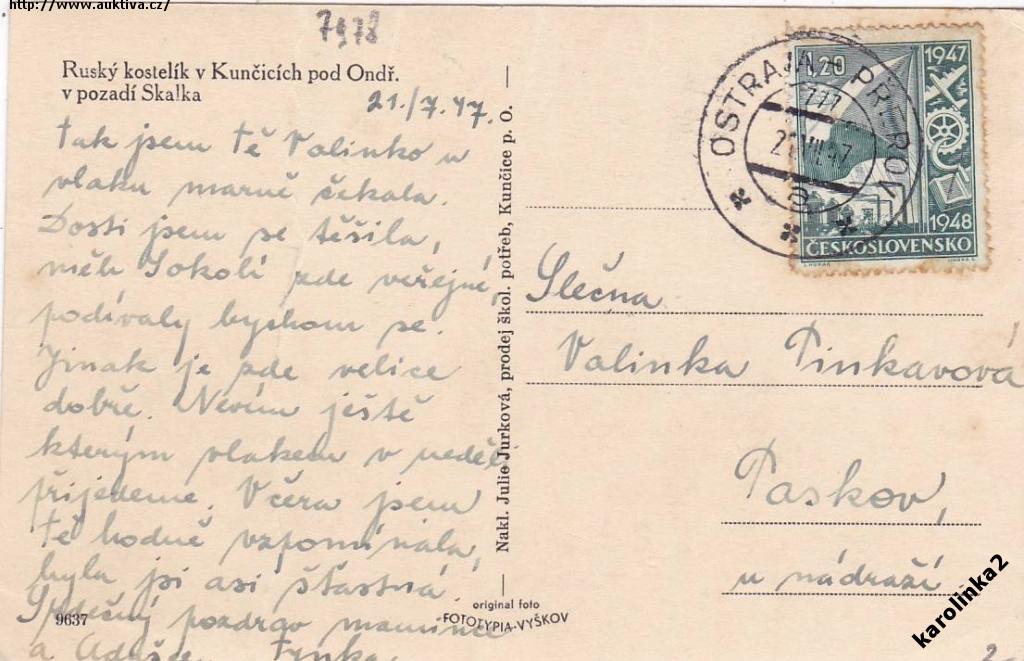 http://www.auktiva.cz/
7978
Ruský kostelík v Kunčicích pod Ondř.
v pozadí Skalka
21./7.47.
tak jsem tě Valinko v
vlaku marně čekala.
Dosti jsem se těšila,
měli Sokolí zde veřejné,
podívaly bychom se.
Jinak je zde velice
dobře. Nevím ještě
kterým vlakem v neděli
přijedeme. Včera jsem
tě hodně vzpomínala,
byla jsi asi šťastná.
Srdečný pozdrav mamince
a
9637
Nakl. Julie Jurková, prodej škol. potřeb, Kunčice p. O.
original foto
FOTOTYPIA-VYŠKOV
OSTRAVA - PŘEROV
1.20
1947
1948
ČESKOSLOVENSKO
Slečna
Valinka Pinkavová
Paskov,
u nádraží
karolinka2